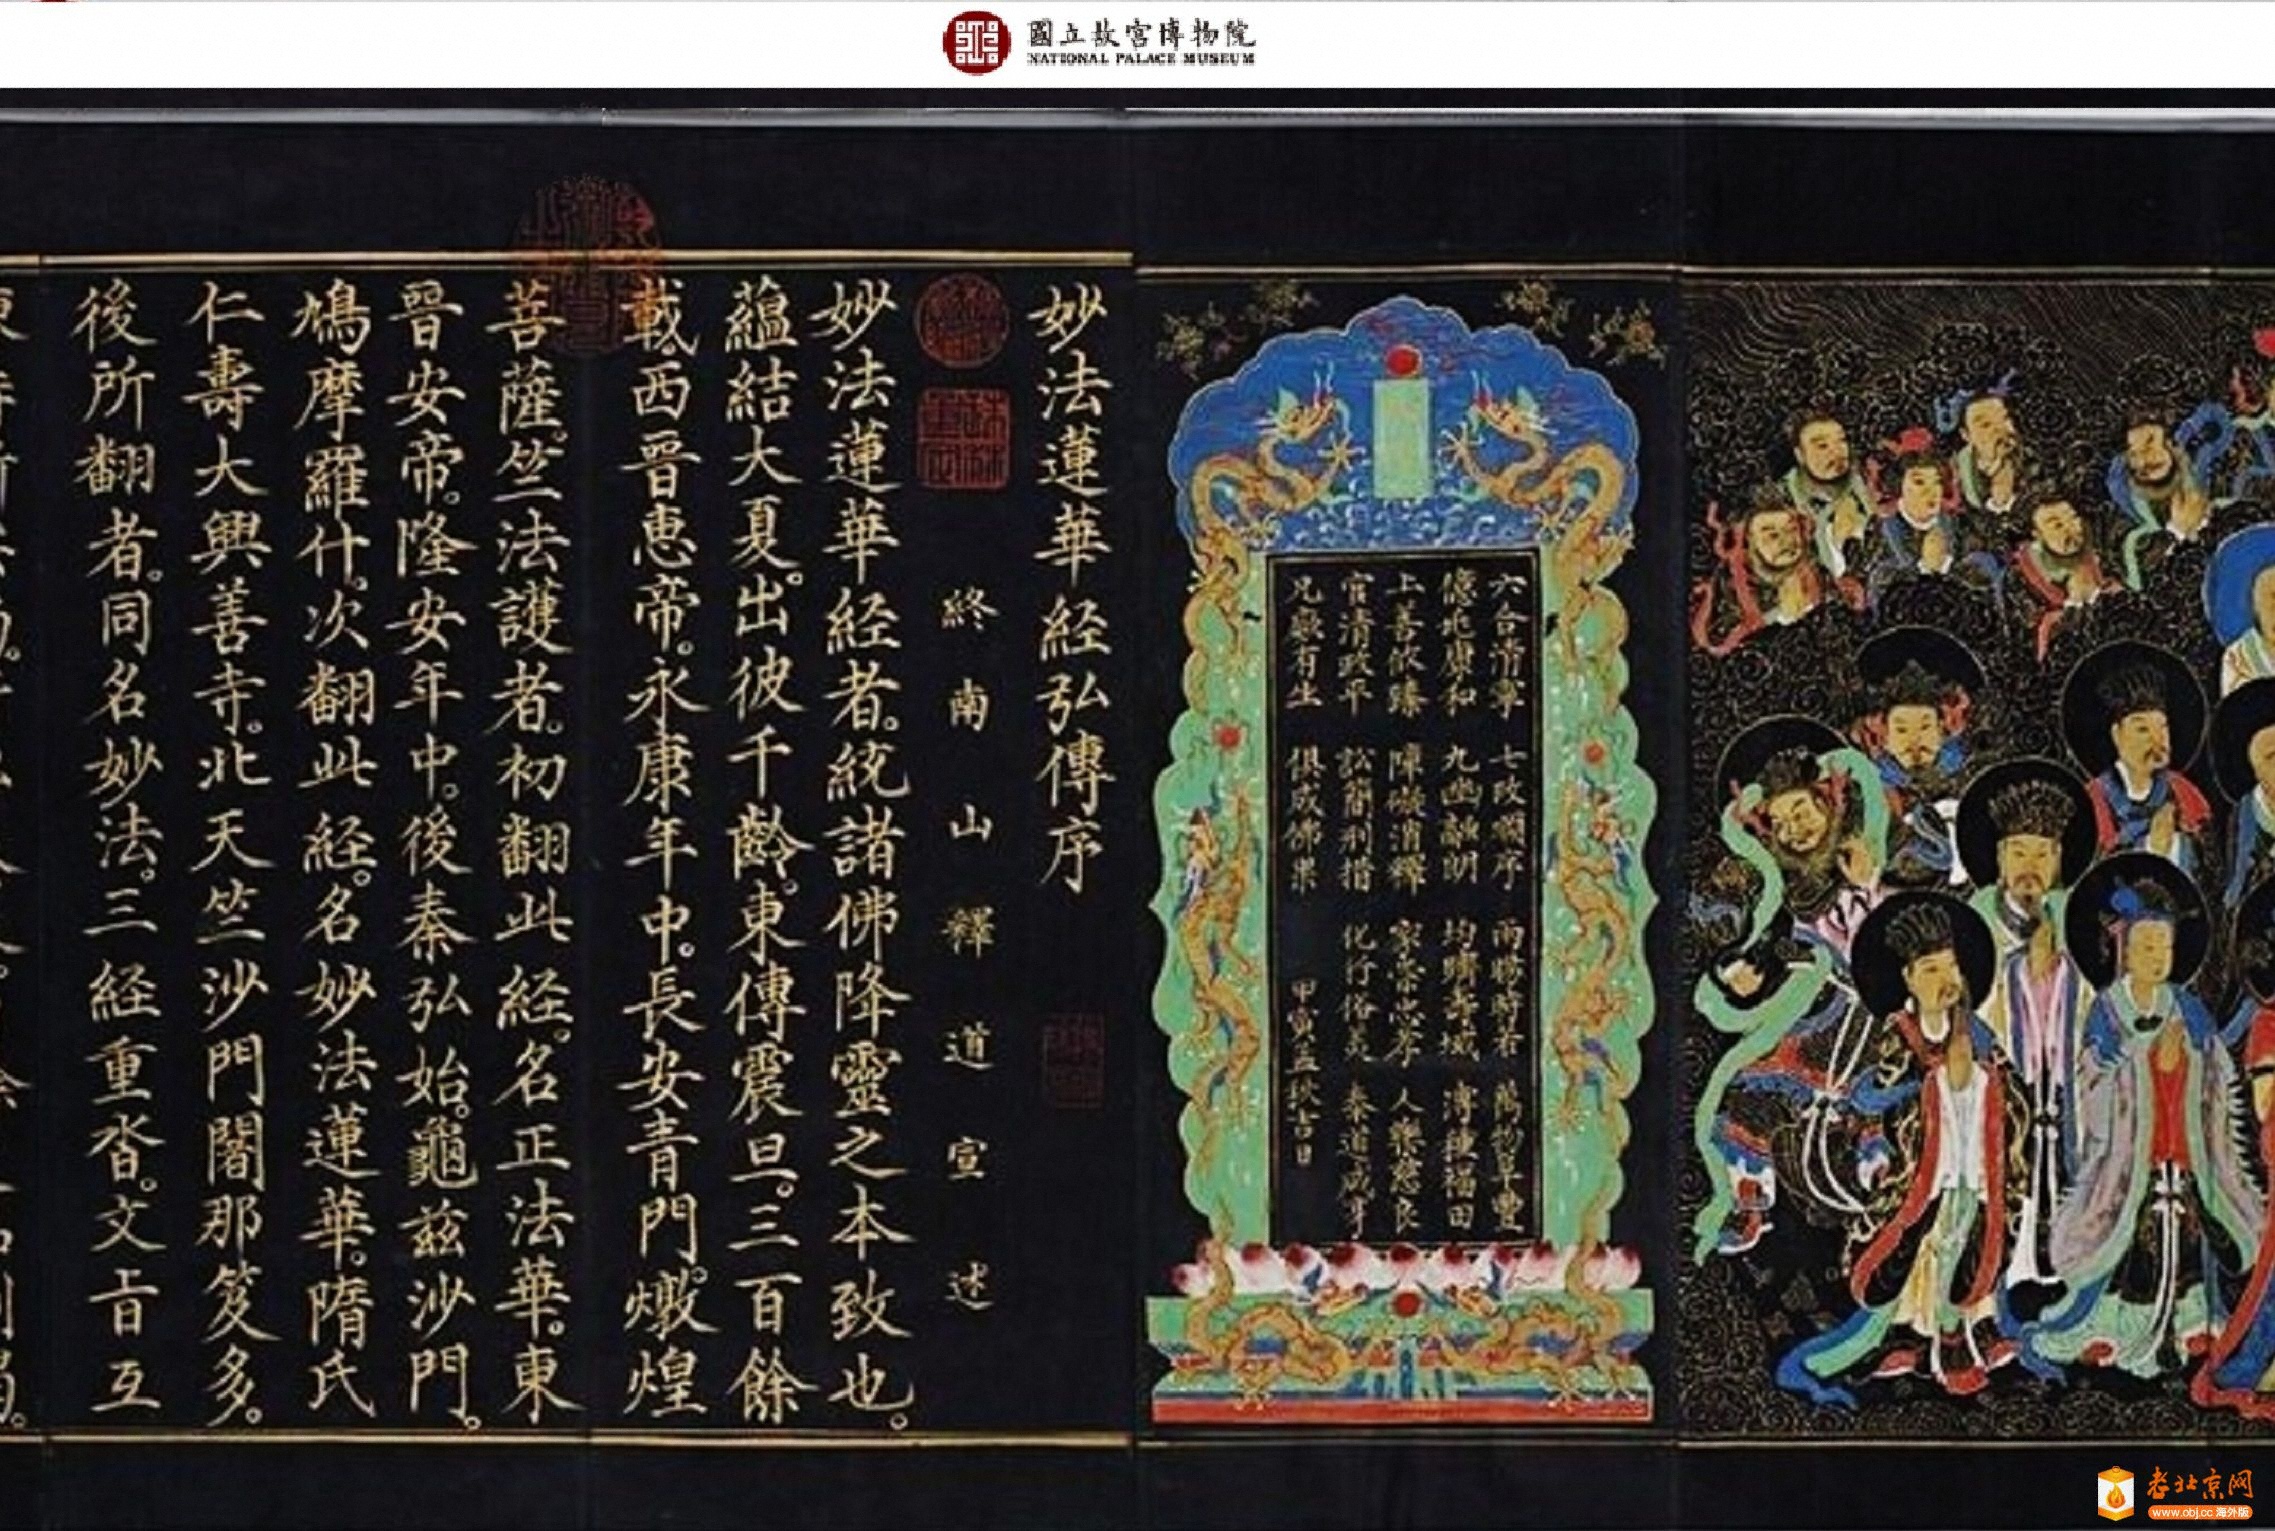 國立故宮博物院
NATIONAL PALACE MUSEUM
六合清寧 七政順序 雨暘時若 萬物阜豐
億兆康和 九幽融朗 均躋壽域 溥種福田
上善攸臻 障礙消釋 家崇忠孝 人樂慈良
官清政平 訟簡刑措 化行俗美 泰道咸亨
凡厥有生 俱成佛果
甲寅孟秋吉日
妙法蓮華経弘傳序
終南山釋道宣述
妙法蓮華経者。統諸佛降靈之本致也。
蘊結大夏。出彼千齡。東傳震旦。三百餘
載。西晉惠帝。永康年中。長安青門。燉煌
菩薩。竺法護者。初翻此経。名正法華。東
晉安帝。隆安年中。後秦弘始。龜兹沙門。
鳩摩羅什。次翻此経。名妙法蓮華。隋氏
仁壽大興善寺。北天竺沙門闍那笈多。
後所翻者。同名妙法。三経重沓。文旨互
老北京网
www.obj.cc 海外版